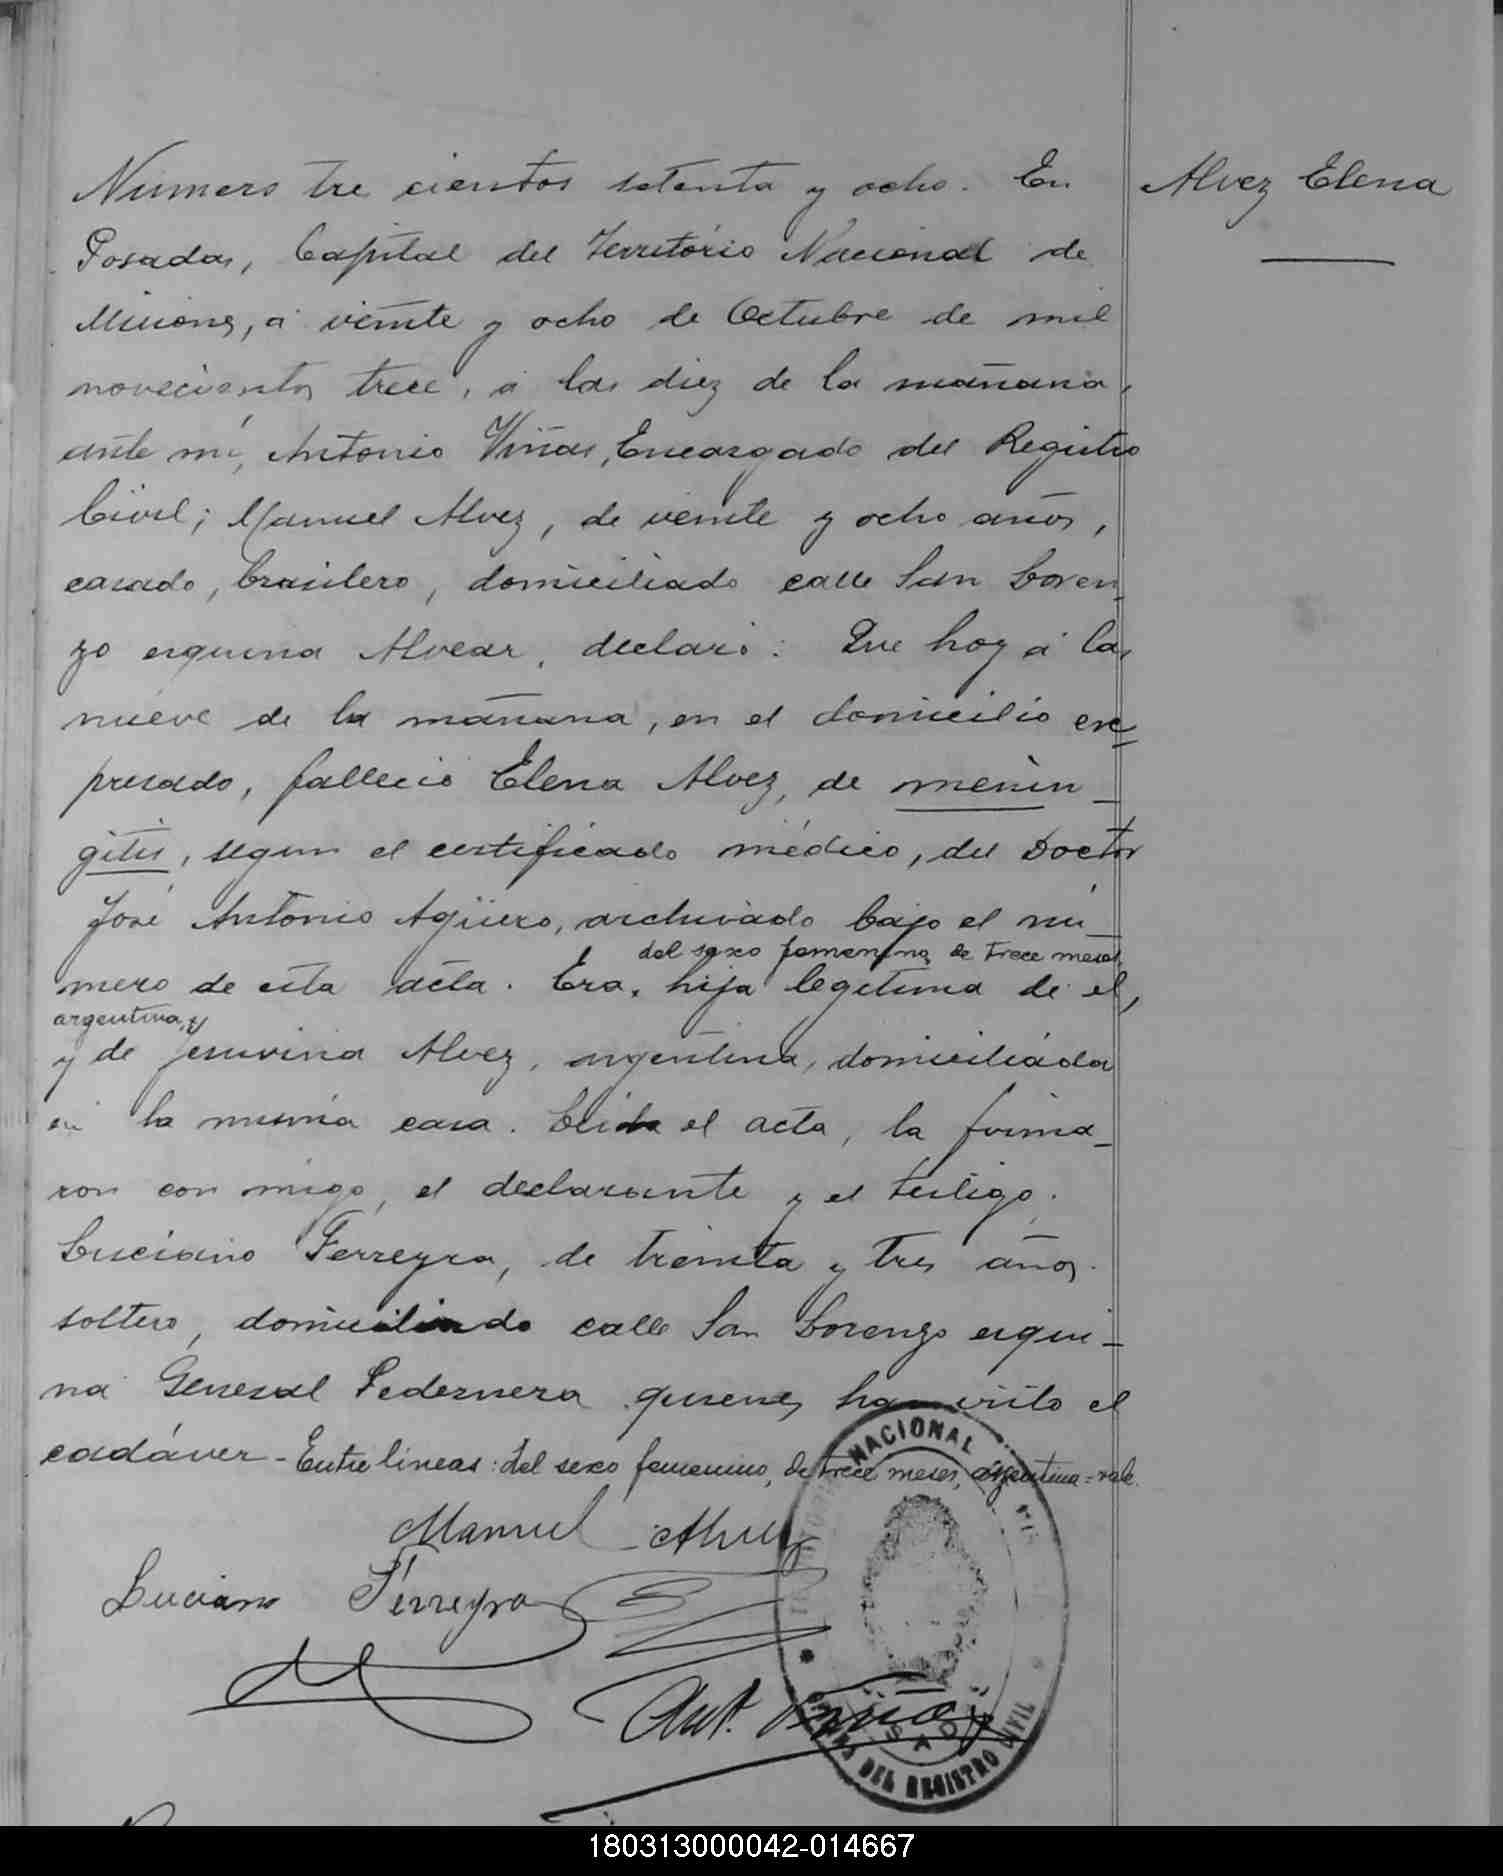 Numero tre cientos setenta y ocho. En
Alvez Elena
Posadas, Capital del Territorio Nacional de
Misiones, á veinte y ocho de Octubre de mil
novecientos trece, á las diez de la mañana,
ante mí, Antonio Viñas, Encargado del Registro
Civil; Manuel Alvez, de veinte y ocho años,
casado, brasilero, domiciliado calle San Loren
zo esquina Alvear, declaró: Que hoy á las
nueve de la mañana, en el domicilio ex=
presado, falleció Elena Alvez, de menin_
gitis, segun el certificado médico, del Doctor
José Antonio Agüero, archivado bajo el nú_
del sexo femenino, de trece meses,
mero de esta acta. Era, hija legitima de el,
argentina, y
y de Jesuvina Alvez, argentina, domiciliada
en la misma casa. Leida el acta, la firma_
ron con migo, el declarante y el testigo.
Luciano Ferreyra, de treinta y tres años.
soltero, domiciliado calle San Lorenzo esqui_
na General Pedernera quienes han visto el
cadáver - Entre lineas: del sexo femenino, de trece meses, argentina = vale.
Manuel Alvez
Luciano Ferreyra
Ant. Viñas
NACIONAL
DEL REGISTRO CIVIL
180313000042-014667